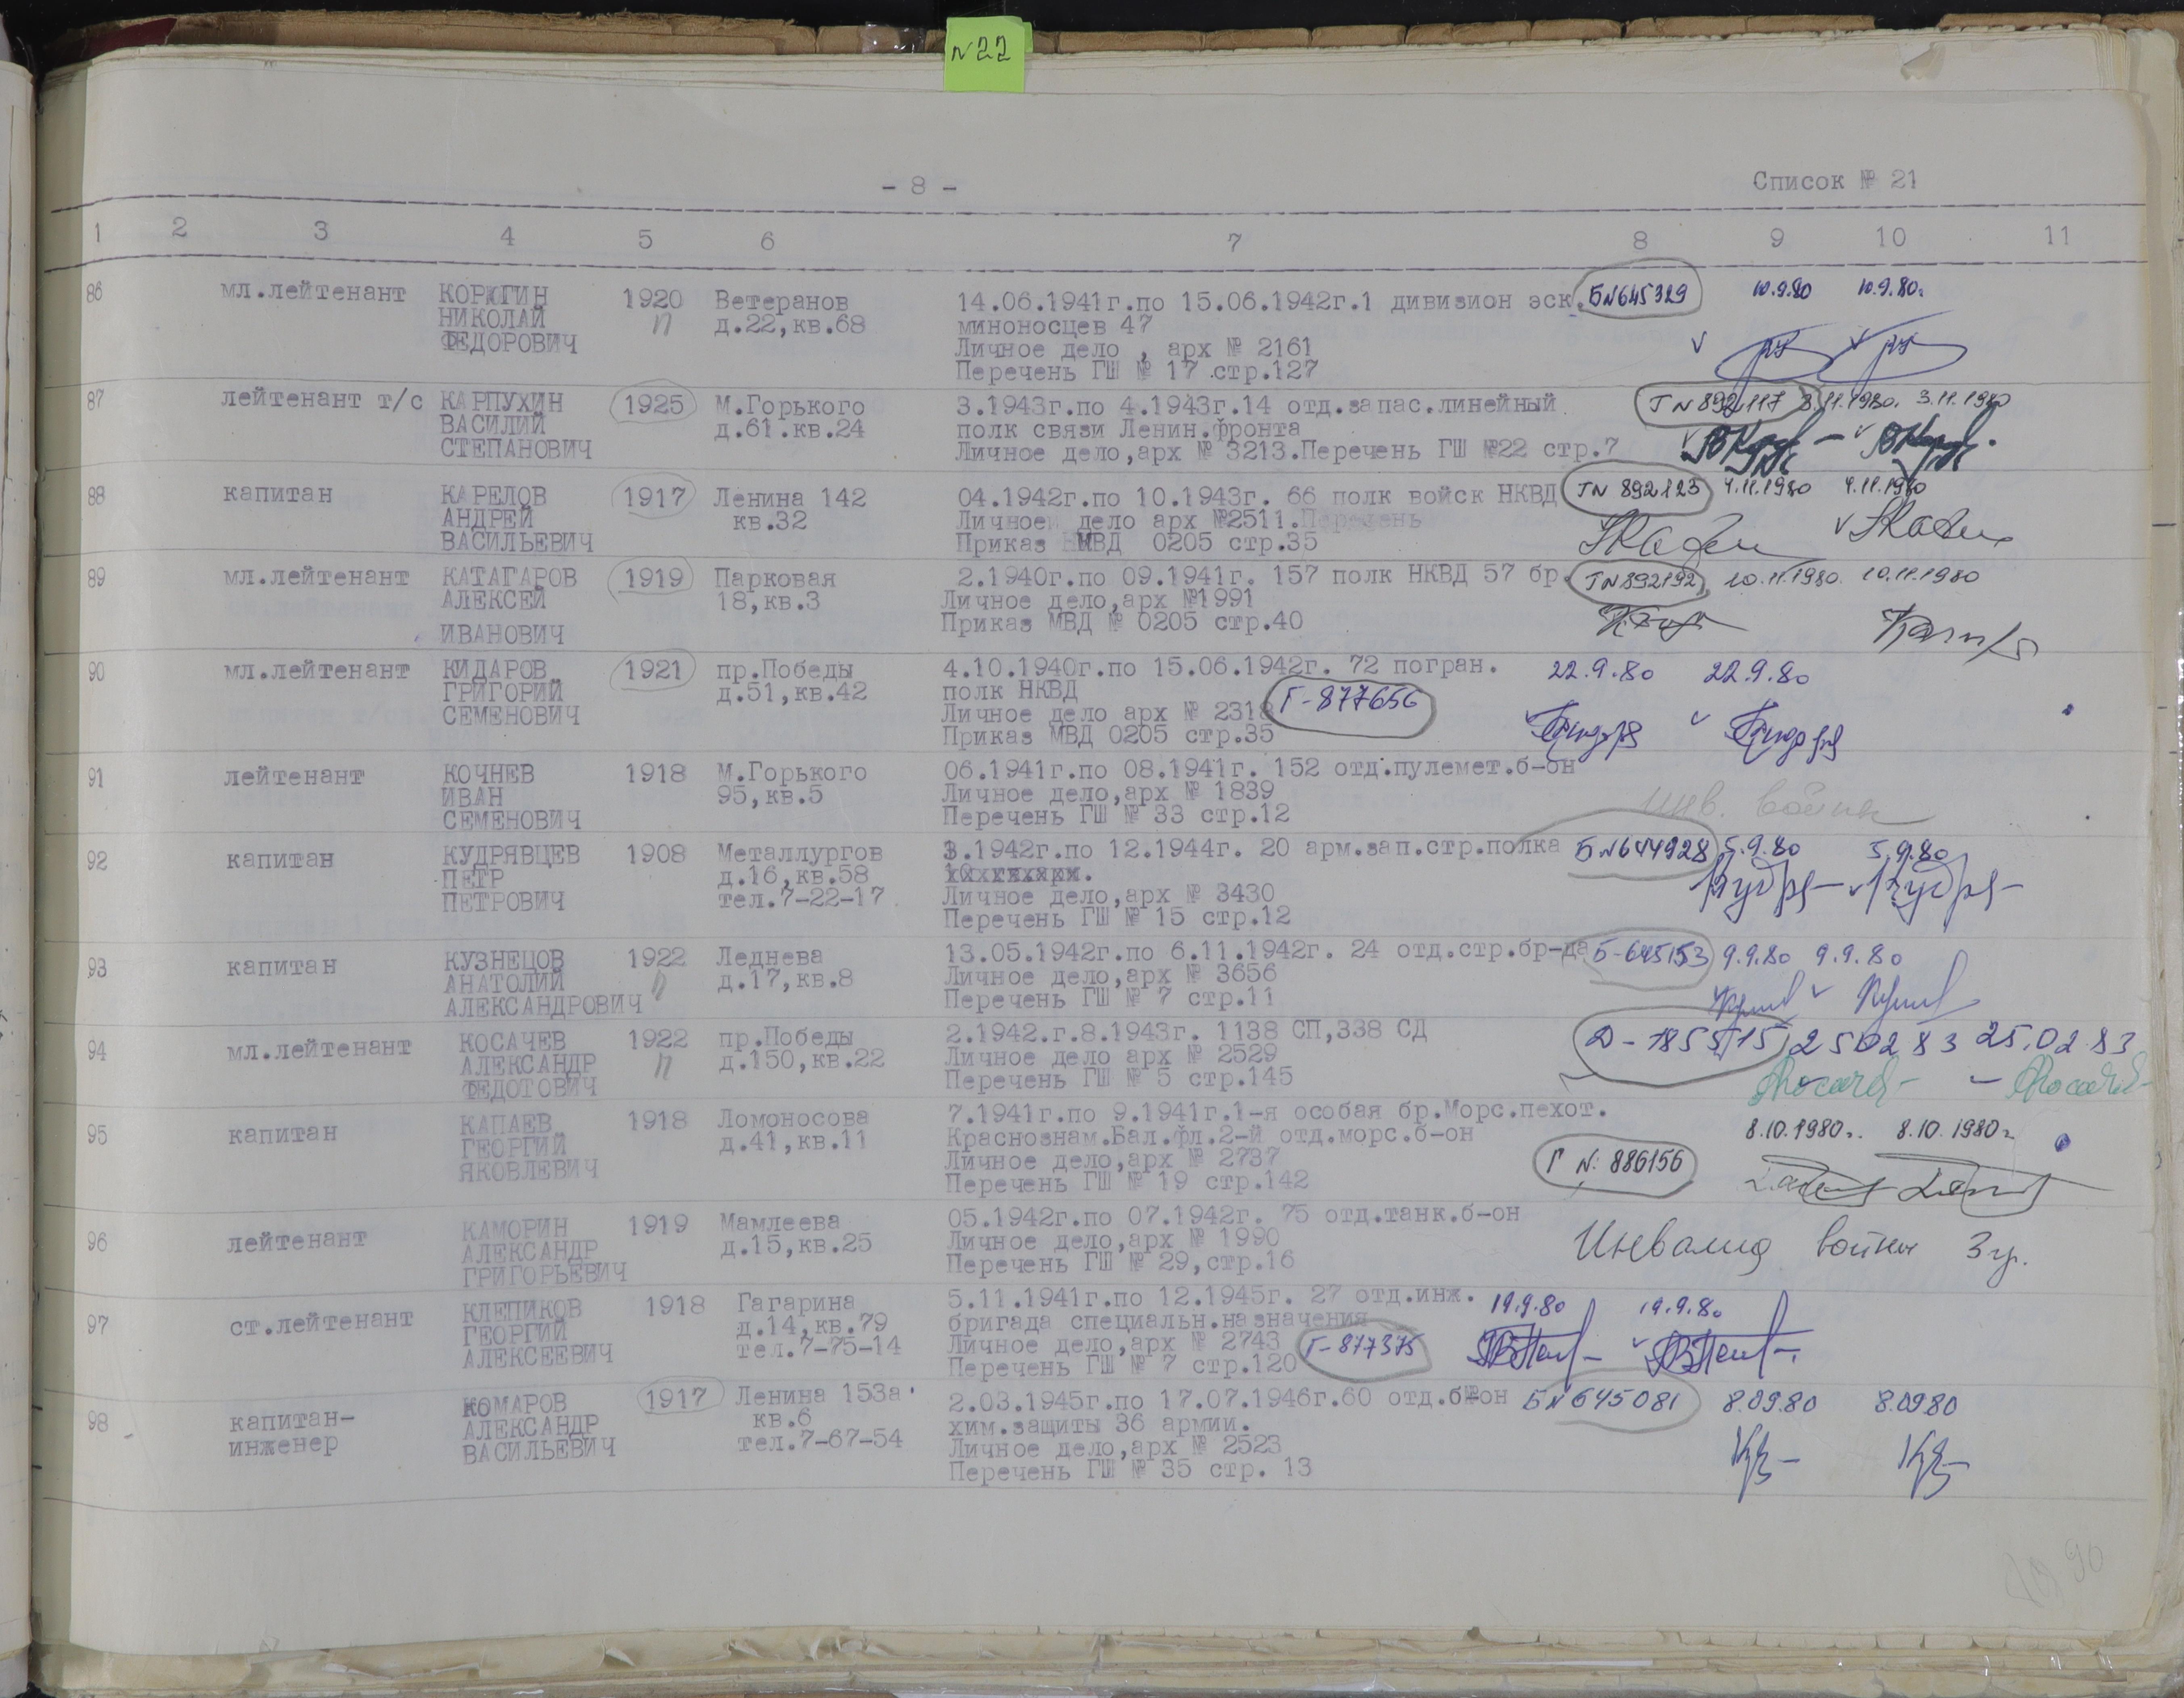 N22
- 8 -
Список № 21
1 2 3 4 5 6 7 8 9 10 11
86 мл.лейтенант КОРЮГИН 1920 Ветеранов 14.06.1941г.по 15.06.1942г.1 дивизион эск. БN645329 10.9.80 10.9.80г
НИКОЛАЙ п д.22,кв.68 миноносцев 47
ФЕДОРОВИЧ Личное дело , арх № 2161
Перечень ГШ № 17 стр.127
87 лейтенант т/с КАРПУХИН 1925 М.Горького 3.1943г.по 4.1943г.14 отд.запас.линейный ГN892117 3.11.1980. 3.11.1980
ВАСИЛИЙ д.61.кв.24 полк связи Ленин.фронта
СТЕПАНОВИЧ Личное дело,арх № 3213.Перечень ГШ №22 стр.7
88 капитан КАРЕЛОВ 1917 Ленина 142 04.1942г.по 10.1943г. 66 полк войск НКВД ГN 892123 4.11.1980 4.11.1980
АНДРЕЙ кв.32 Личное дело арх №2511.Перечень
ВАСИЛЬЕВИЧ Приказ МВД 0205 стр.35
89 мл.лейтенант КАТАГАРОВ 1919 Парковая 2.1940г.по 09.1941г. 157 полк НКВД 57 бр. ГN892192 10.11.1980. 10.11.1980
АЛЕКСЕЙ 18,кв.3 Личное дело,арх №1991
ИВАНОВИЧ Приказ МВД № 0205 стр.40
90 мл.лейтенант КИДАРОВ 1921 пр.Победы 4.10.1940г.по 15.06.1942г. 72 погран. 22.9.80 22.9.80
ГРИГОРИЙ д.51,кв.42 полк НКВД Г-877656
СЕМЕНОВИЧ Личное дело арх № 2318
Приказ МВД 0205 стр.35
91 лейтенант КОЧНЕВ 1918 М.Горького 06.1941г.по 08.1941г. 152 отд.пулемет.б-он
ИВАН 95,кв.5 Личное дело,арх № 1839 инв. войны
СЕМЕНОВИЧ Перечень ГШ № 33 стр.12
92 капитан КУДРЯВЦЕВ 1908 Металлургов 3.1942г.по 12.1944г. 20 арм.зап.стр.полка БN644928 5.9.80 5.9.80
ПЕТР д.16,кв.58
ПЕТРОВИЧ тел.7-22-17 Личное дело,арх № 3430
Перечень ГШ № 15 стр.12
93 капитан КУЗНЕЦОВ 1922 Леднева 13.05.1942г.по 6.11.1942г. 24 отд.стр.бр-да Б-645153 9.9.80 9.9.80
АНАТОЛИЙ п д.17,кв.8 Личное дело,арх № 3656
АЛЕКСАНДРОВИЧ Перечень ГШ № 7 стр.11
94 мл.лейтенант КОСАЧЕВ 1922 пр.Победы 2.1942.г.8.1943г. 1138 СП,338 СД Д-185515 250283 25.02.83
АЛЕКСАНДР п д.150,кв.22 Личное дело арх № 2529
ФЕДОТОВИЧ Перечень ГШ № 5 стр.145
95 капитан КАПАЕВ 1918 Ломоносова 7.1941г.по 9.1941г.1-я особая бр.Морс.пехот. 8.10.1980г. 8.10.1980г
ГЕОРГИЙ д.41,кв.11 Краснознам.Бал.фл.2-й отд.морс.б-он
ЯКОВЛЕВИЧ Личное дело,арх № 2737 Г N: 886156
Перечень ГШ № 19 стр.142
96 лейтенант КАМОРИН 1919 Мамлеева 05.1942г.по 07.1942г. 75 отд.танк.б-он
АЛЕКСАНДР д.15,кв.25 Личное дело,арх № 1990 Инвалид войны 3гр.
ГРИГОРЬЕВИЧ Перечень ГШ № 29,стр.16
97 ст.лейтенант КЛЕПИКОВ 1918 Гагарина 5.11.1941г.по 12.1945г. 27 отд.инж. 19.9.80 19.9.80
ГЕОРГИЙ д.14,кв.79 бригада специальн.назначения
АЛЕКСЕЕВИЧ тел.7-75-14 Личное дело,арх № 2743 Г-877375
Перечень ГШ № 7 стр.120
98 капитан- КОМАРОВ 1917 Ленина 153а 2.03.1945г.по 17.07.1946г.60 отд.б-он БN645081 8.09.80 8.0980
инженер АЛЕКСАНДР кв.6 хим.защиты 36 армии.
ВАСИЛЬЕВИЧ тел.7-67-54 Личное дело,арх № 2523
Перечень ГШ № 35 стр. 13